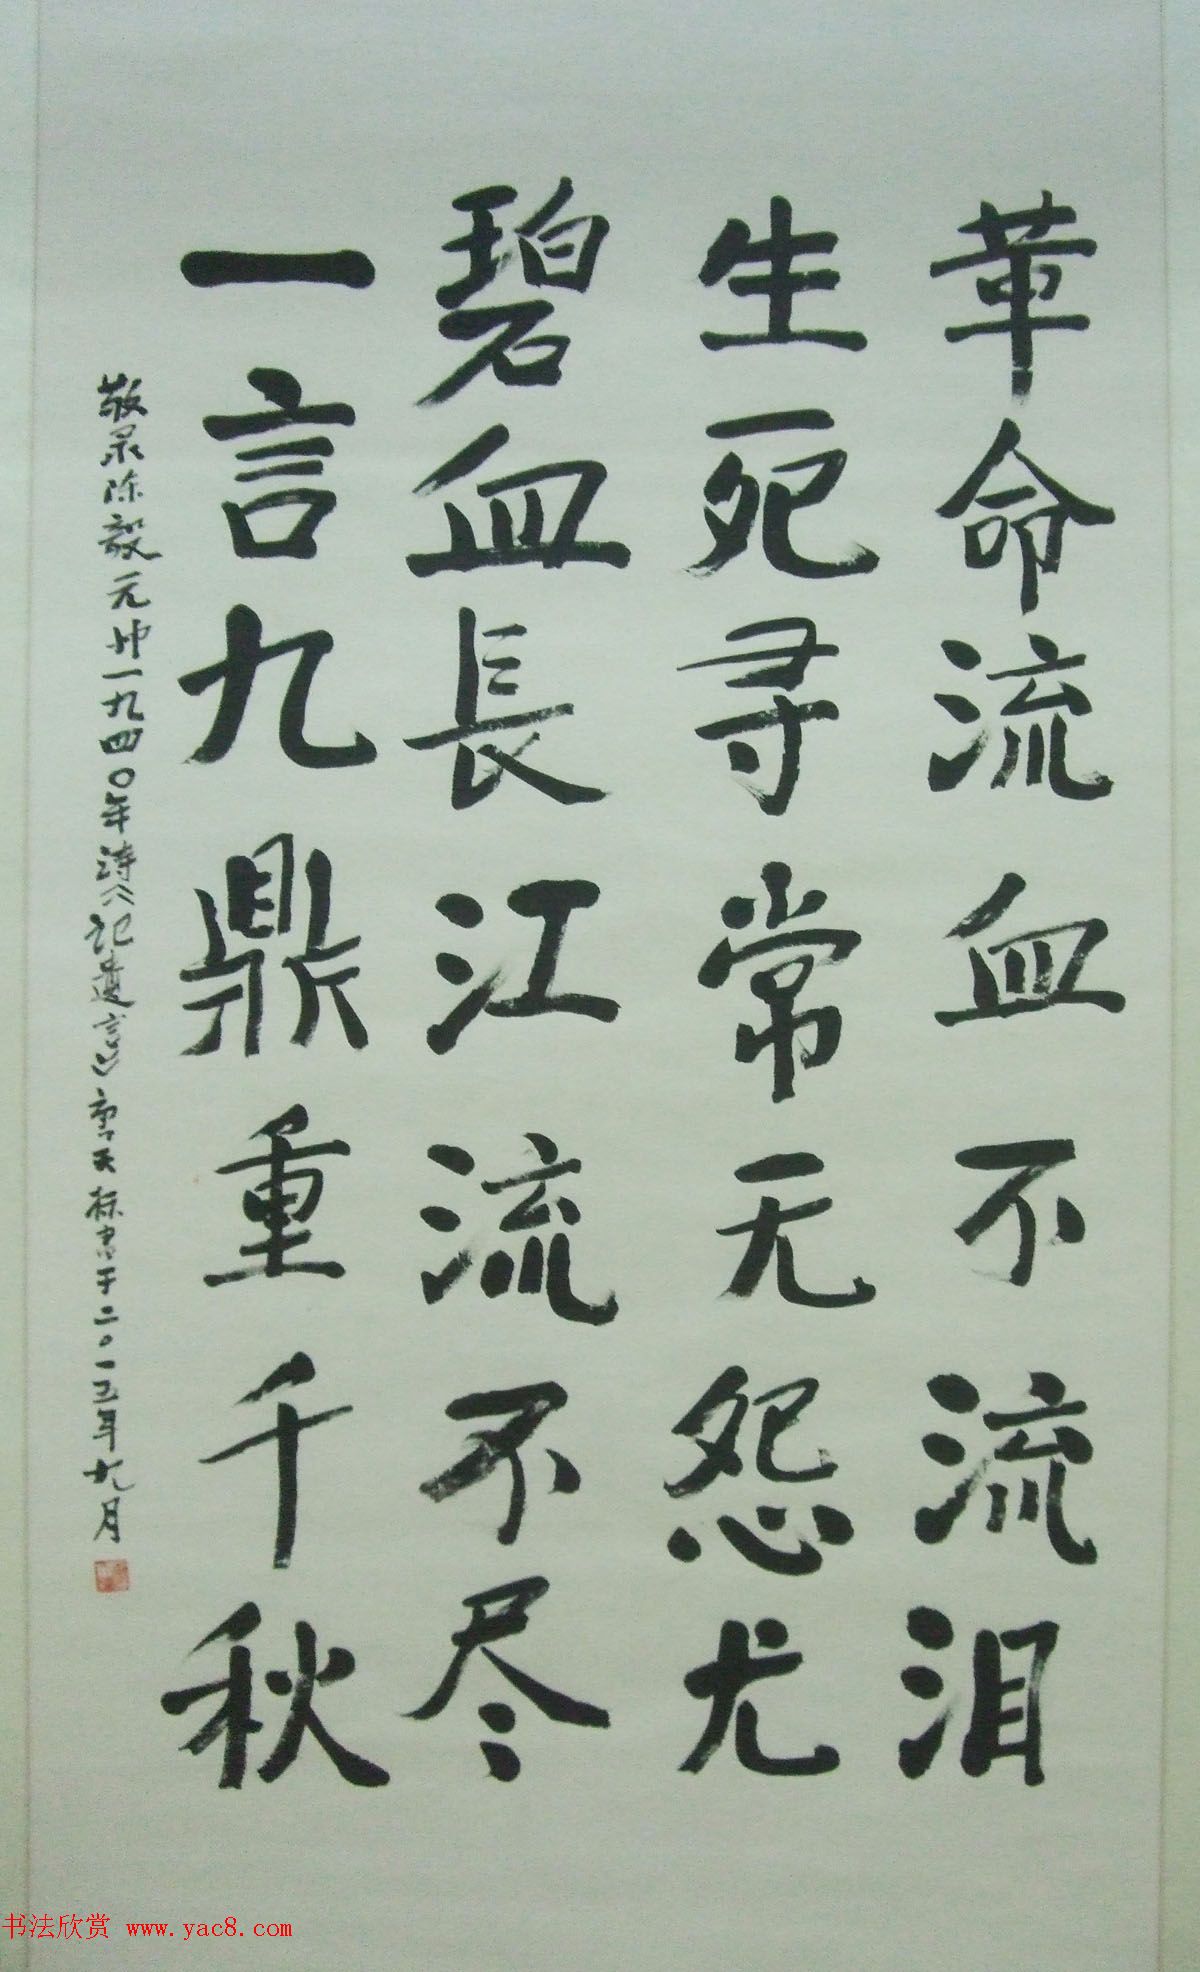 革命流血不流泪
生死寻常无怨尤
碧血长江流不尽
一言九鼎重千秋
敬录陈毅元帅一九四〇年诗《记遗言》 唐天标书于二〇一五年九月
书法欣赏 www.yac8.com